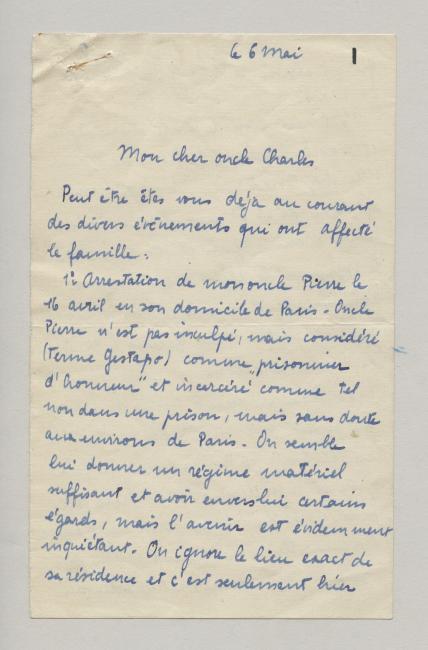 le 6 Mai
1
Mon cher oncle Charles
Peut être êtes vous déja au courant
des divers évênements qui ont affecté
le famille :
1° Arrestation de mon oncle Pierre le
16 avril en son domicile de Paris - Oncle
Pierre n'est pas inculpé, mais considéré
(terme Gestapo) comme "prisonnier
d'honneur" et incercéré comme tel
non dans une prison, mais sans doute
aux environs de Paris - On semble
lui donner un régime matériel
suffisant et avoir envers lui certains
égards, mais l'avenir est évidemment
inquiétant. On ignore le lieu exact de
sa résidence et c'est seulement hier